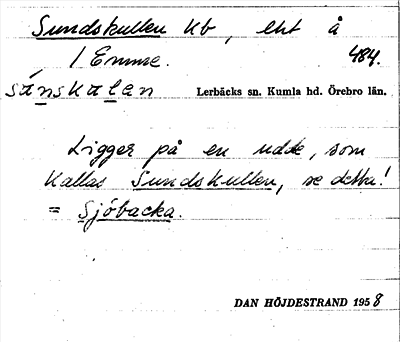 Sundskullen Kb, ent å
1 Emme. 484.
sánskalen Lerbäcks sn. Kumla hd. Örebro län.
Ligger på en udde, som
kallas Sundskullen, se detta!
= Sjöbacka.
DAN HÖJDESTRAND 1958